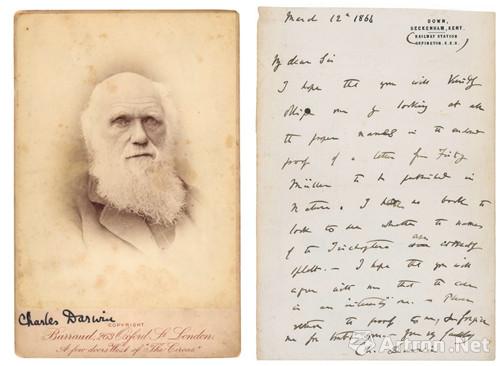 Charles Darwin
COPYRIGHT
Barraud, 263 Oxford St. London.
A few doors West of "The Circus"
DOWN,
BECKENHAM, KENT.
RAILWAY STATION
ORPINGTON. S.E.R.
March 12th
My dear Sir
I hope that you will kindly
oblige me by looking at all
the proper names in the enclosed
proof of a letter from Fritz
Müller to be published in
Nature. I have no book to
look to see whether the names
of the Trichoptera are correctly
spelt. — I hope that you will
agree with me that the case
is an interesting one. — Please
return the proof to me, & forgive
me for troubling you
Ch. Darwin
Artron.Net